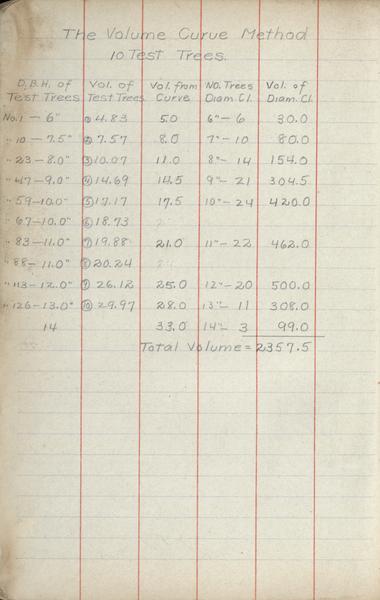 The Volume Curve Method
10 Test Trees.
D.B.H. of Test Trees Vol. of Test Trees Vol. from Curve No. Trees Diam. Cl. Vol. of Diam. Cl.
No.1 — 6" ① 4.83 5.0 6"— 6 30.0
" 10 — 7.5" ② 7.57 8.0 7"— 10 80.0
" 23 — 8.0" ③ 10.07 11.0 8"— 14 154.0
" 47 — 9.0" ④ 14.69 14.5 9"— 21 304.5
" 59 — 10.0" ⑤ 17.17 17.5 10"— 24 420.0
" 67 — 10.0" ⑥ 18.73
" 83 — 11.0" ⑦ 19.88 21.0 11"— 22 462.0
" 88 — 11.0" ⑧ 20.24
" 113 — 12.0" ⑨ 26.12 25.0 12"— 20 500.0
" 126 — 13.0" ⑩ 29.97 28.0 13"— 11 308.0
14 33.0 14"— 3 99.0
Total Volume = 2357.5